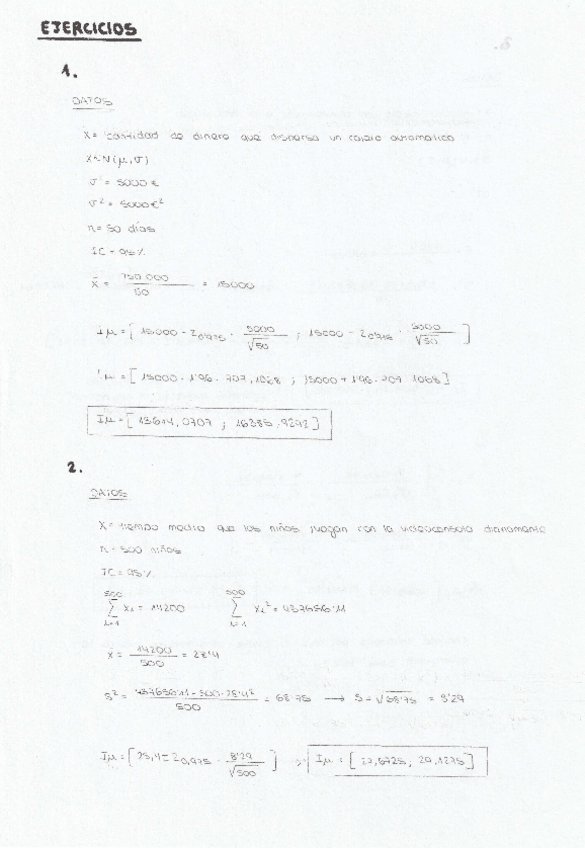 EJERCICIOS
1.
DATOS
X = cantidad de dinero que dispensa un cajero automático
X ~ N(μ, σ)
σ = 5000 €
σ² = 5000 €²
n = 50 días
IC = 95%
x̄ = 750.000 / 50 = 15000
Iμ = [ 15000 - z0,975 · 5000/√50 ; 15000 - z0,975 · 5000/√50 ]
Iμ = [ 15000 - 1'96 · 707,1068 ; 15000 + 1'96 · 707,1068 ]
Iμ = [ 13614,0707 ; 16385,9292 ]
2.
DATOS
X = tiempo medio que los niños juegan con la videoconsola diariamente
n = 500 niños
IC = 95%
500 ∑ i=1 xi = 14200    500 ∑ i=1 xi² = 437656'11
x̄ = 14200 / 500 = 28'4
S² = / 500 = 68'75 → S = √68'75 = 8'29
Iμ = [ z0,975 · 8'29/√500 ] → Iμ = [ ]